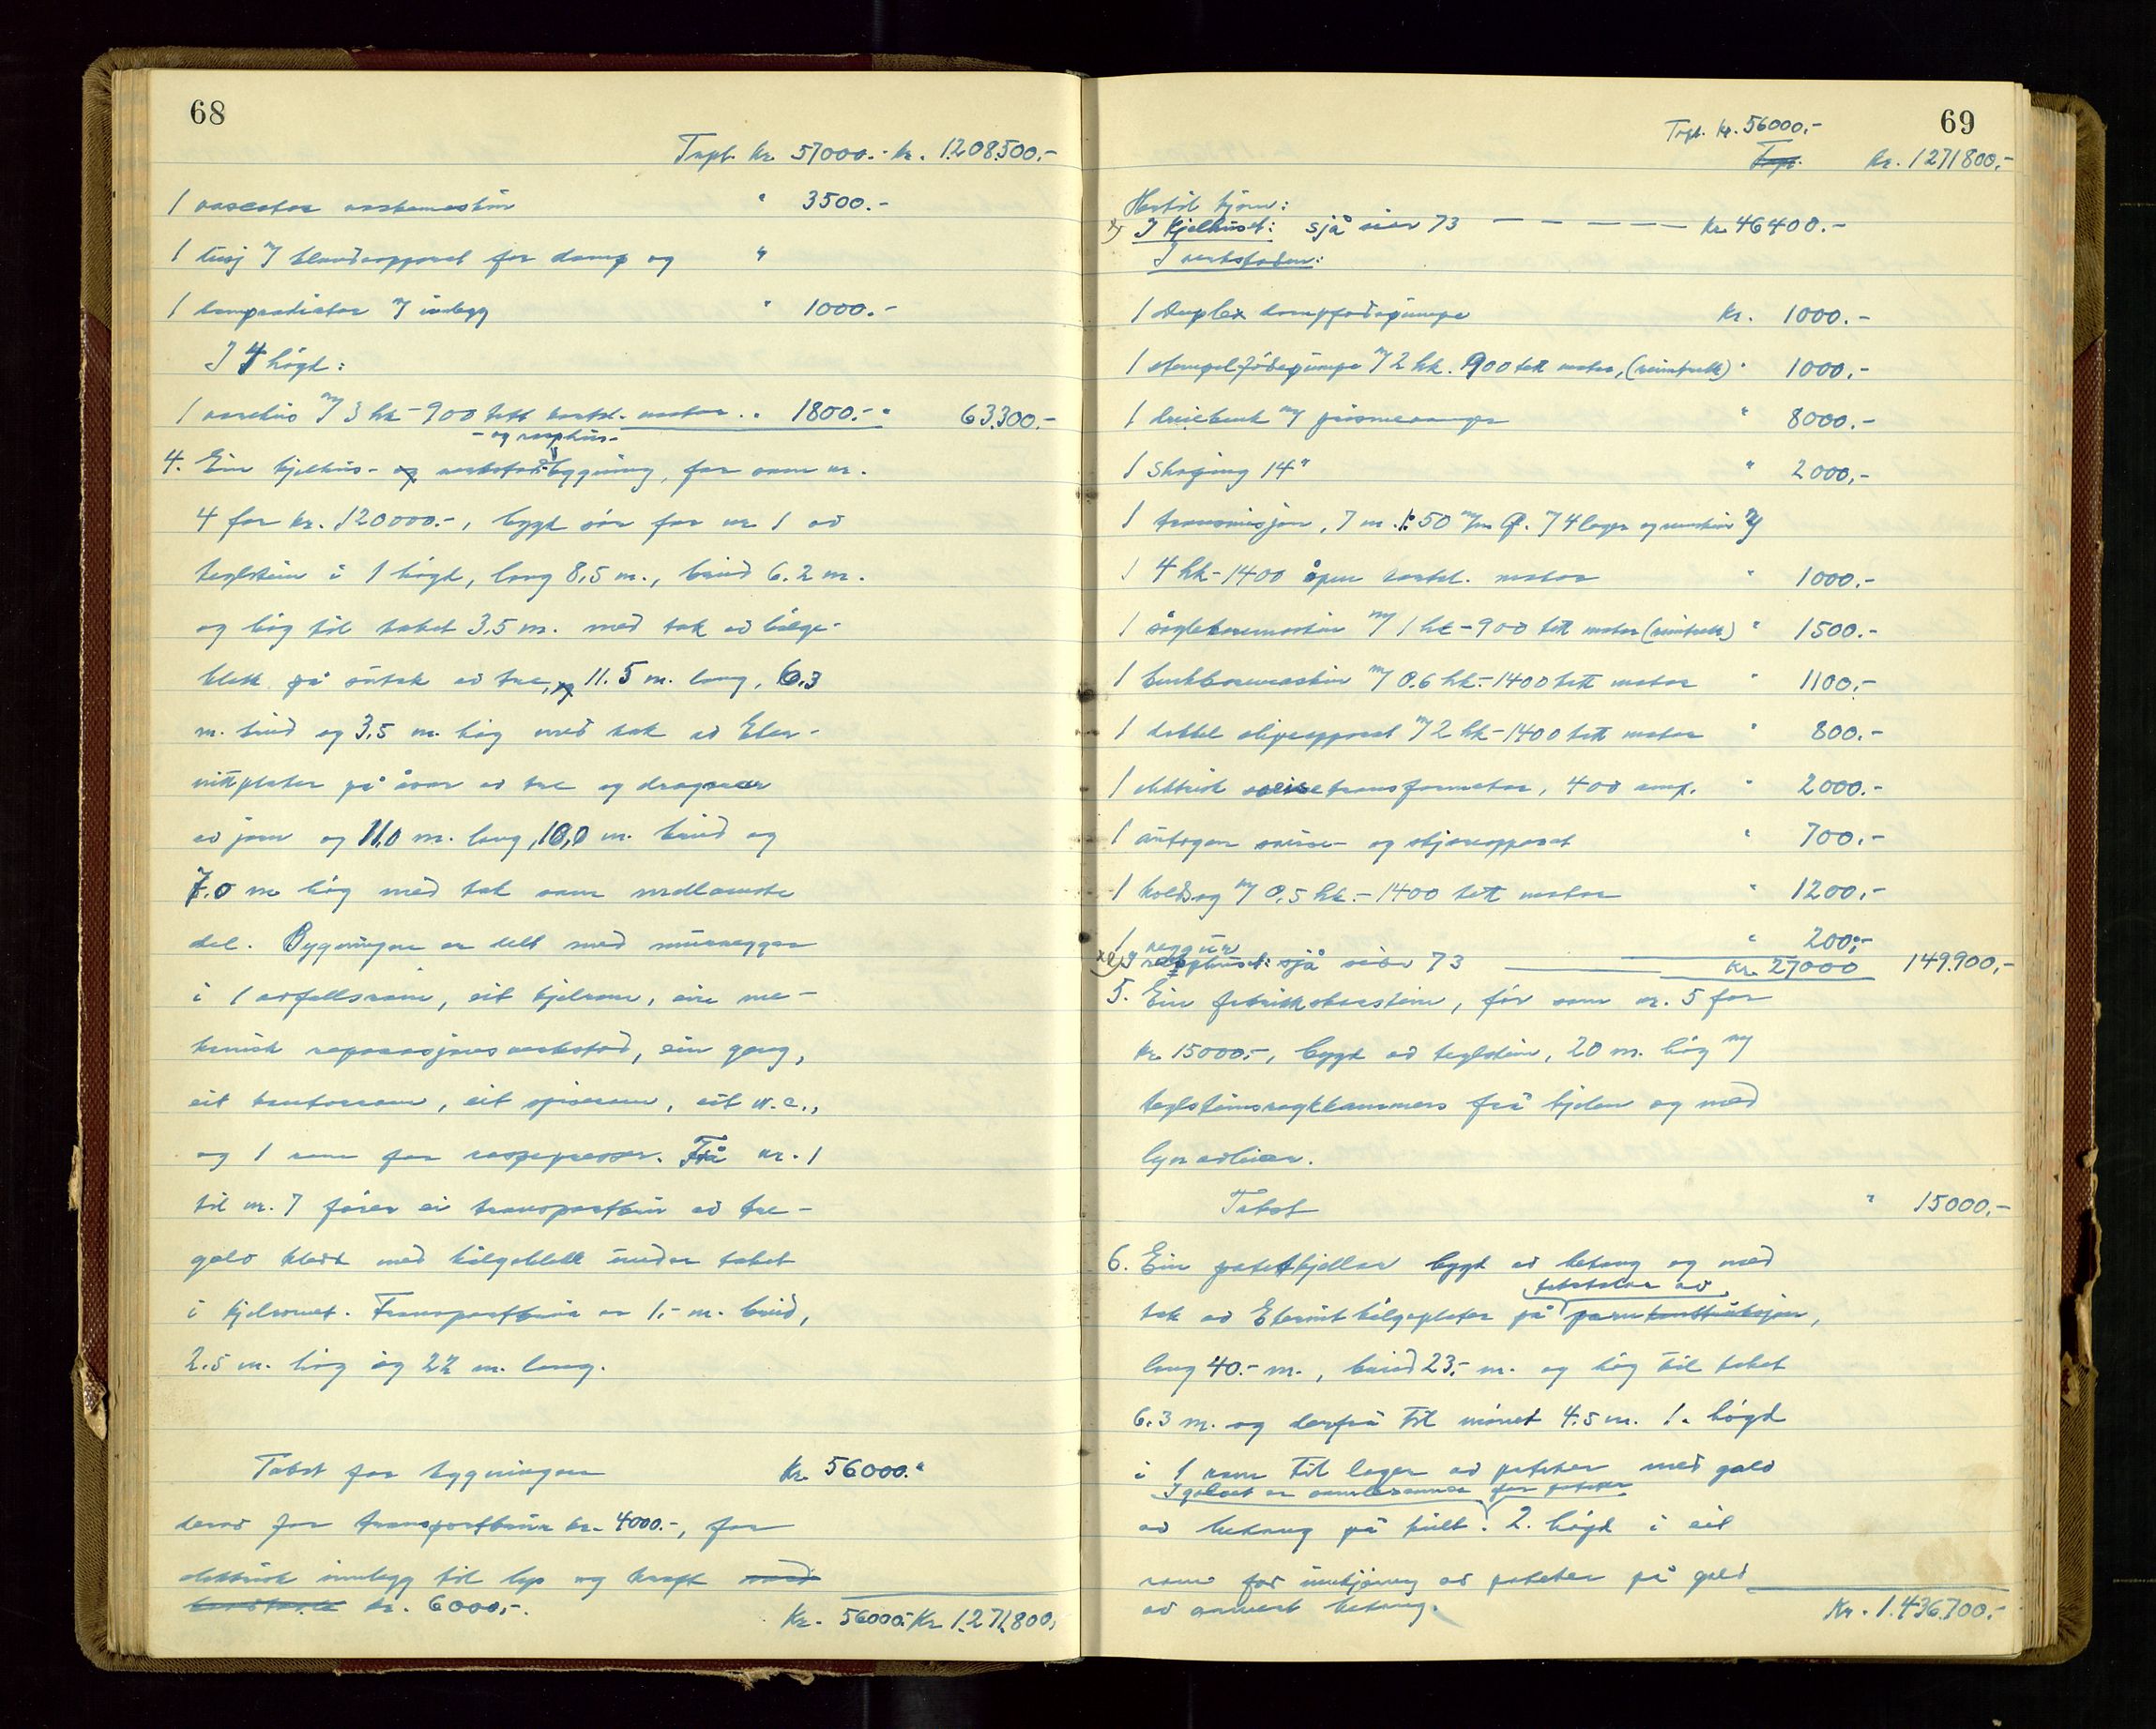 68
Trpt. kr. 57000.- kr. 1.208.500,-
1 vaskemaskin " 3500.-
1 tusj m/ blandeapparat for damp og "
1 dampradiator m/ innlegg " 1000.-
I 4 høgd:
1 varehus m/ 3 hk - 900 tett kortsl. motor .. " 1800.- " 63.300.-
- og rasphus-
4. Ein kjelhus- og verkstadbygning, før som nr.
4 for kr. 120000.-, bygt sør for nr. 1 av
teglstein i 1 høgd, lang 8,5 m., breid 6.2 m.
og høg til taket 3.5 m. med tak av bølge-
blekk på sutak av tre, og 11.5 m. lang, 6.3
m. breid og 3,5 m. høg med tak av Eter-
nittplater på åsar av tre og dragarar
av jarn og 11,0 m. lang, 10,0 m. breid og
7.0 m høg med tak som nedlemste
del. Bygningen er delt med murveggar
i 1 avfallsrom, eit kjelrom, ein me-
kanisk reparasjonsverkstad, ein gang,
eit kontorrom, eit spiserom, eit w.c.,
og 1 rom for raspepresser. Frå nr. 1
til nr. 7 fører ei transportbru av tre-
golv kledt med bølgeblekk under taket
i kjelromet. Transportbrua er 1,- m. breid,
2.5 m. høg og 22 m. lang.
Takst for bygningen Kr. 56000."
derav for transportbrua kr. 4000.-, for
elektrisk innlegg til lys og kraft med
kr. 6000,-.
Kr. 56000.- Kr 1.271.800,
69
Trpt. kr. 56000,-
Trpt. kr. 1271800,-
Hertil kjem:
x) I kjelhuset: sjå sier 73 — — — — — kr. 46400.-
I verkstaden:
1 Duplex dampfødepumpe kr. 1000.-
1 stempelfødepumpe m/ 2 hk. 900 tett motor, (reimtrekk) " 1000.-
1 dreiebenk m/ prismevange " 8000.-
1 Shaping 14" " 2000,-
1 transmisjon, 7 m. 50 m/m Ø. m/ 4 lager og remskiver m/
1 4 hk - 1400 åpen kortsl. motor " 1000.-
1 søyleboremaskin m/ 1 hk - 900 tett motor (reimtrekk) " 1500.-
1 benkboremaskin m/ 0.6 hk. - 1400 tett motor " 1100.-
1 dobbel slipeapparat m/ 2 hk - 1400 tett motor " 800.-
1 elektrisk sveisetransformator, 400 amp. " 2000.-
1 autogen sveise- og skjæreapparat " 700.-
1 koldsag m/ 0.5 hk. - 1400 tett motor " 1200.-
1 veggur " 200,-
x2) I rasphuset: sjå sier 73 ——— kr. 27000 149.900,-
5. Ein fabrikkskorstein, før som nr. 5 for
kr. 15000.-, bygt av teglstein, 20 m. høg m/
teglsteinsrøykkammers frå kjelen og med
lynavleiar.
Takst " 15000,-
6. Ein potetkjellar bygt av betong og med
takstolar av
tak av Eternit bølgeplater på jarnkonstruksjon,
lang 40.- m., breid 23.- m. og høg til taket
6.3 m. og derfrå til mønet 4.5 m. 1. høgd
i 1 rom til lager av poteter med golv
I golvet er for poteter
av betong på kult. 2. høgd i eit
rom for innkjøring av poteter på golv
av armert betong. Kr. 1.436.700.-